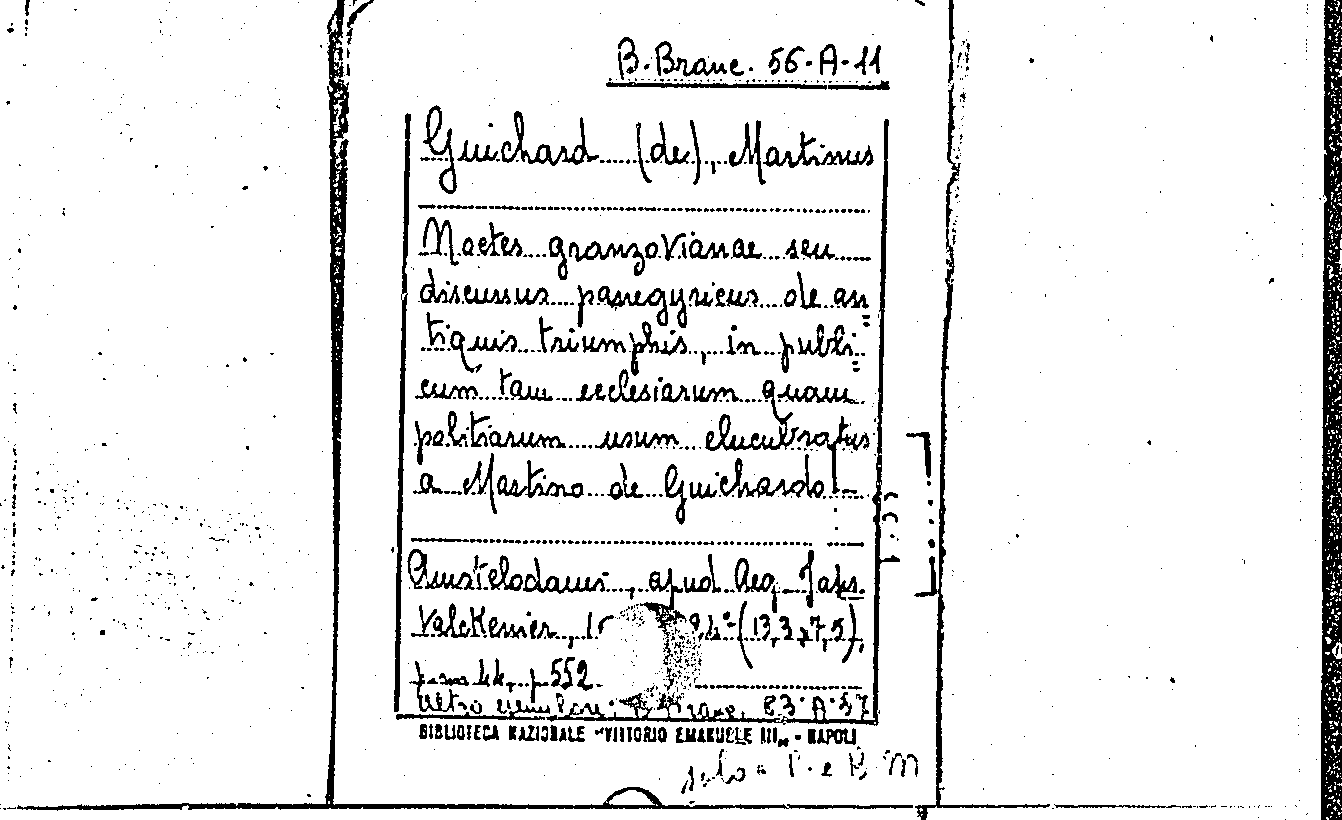 B. Branc. 56-A-11
Guichard (de), Martinus
Noctes granzovianae seu
discursus panegyricus de an
tiquis triumphis, in publi
cum tam ecclesiarum quam
politiarum usum elucubratus
a Martino de Guichardo! -
Amstelodami, apud Aeg. Jans.
Valckenier, (13,3x7,5).
p. 552
Altro esemplare: B. Branc. 83-A-37
BIBLIOTECA NAZIONALE "VITTORIO EMANUELE III„ - NAPOLI
solo a P. e B M